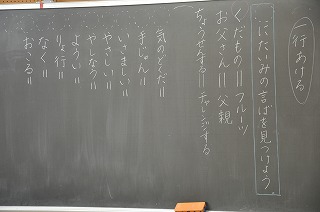 一行あける
にたいみの言ばを見つけよう
くだもの＝フルーツ
お父さん＝父親
ちょうせんする＝チャレンジする
気のどくだ＝
手じゅん＝
いさましい＝
やさしい＝
やしなう＝
ようい＝
りょ行＝
なく＝
おこる＝